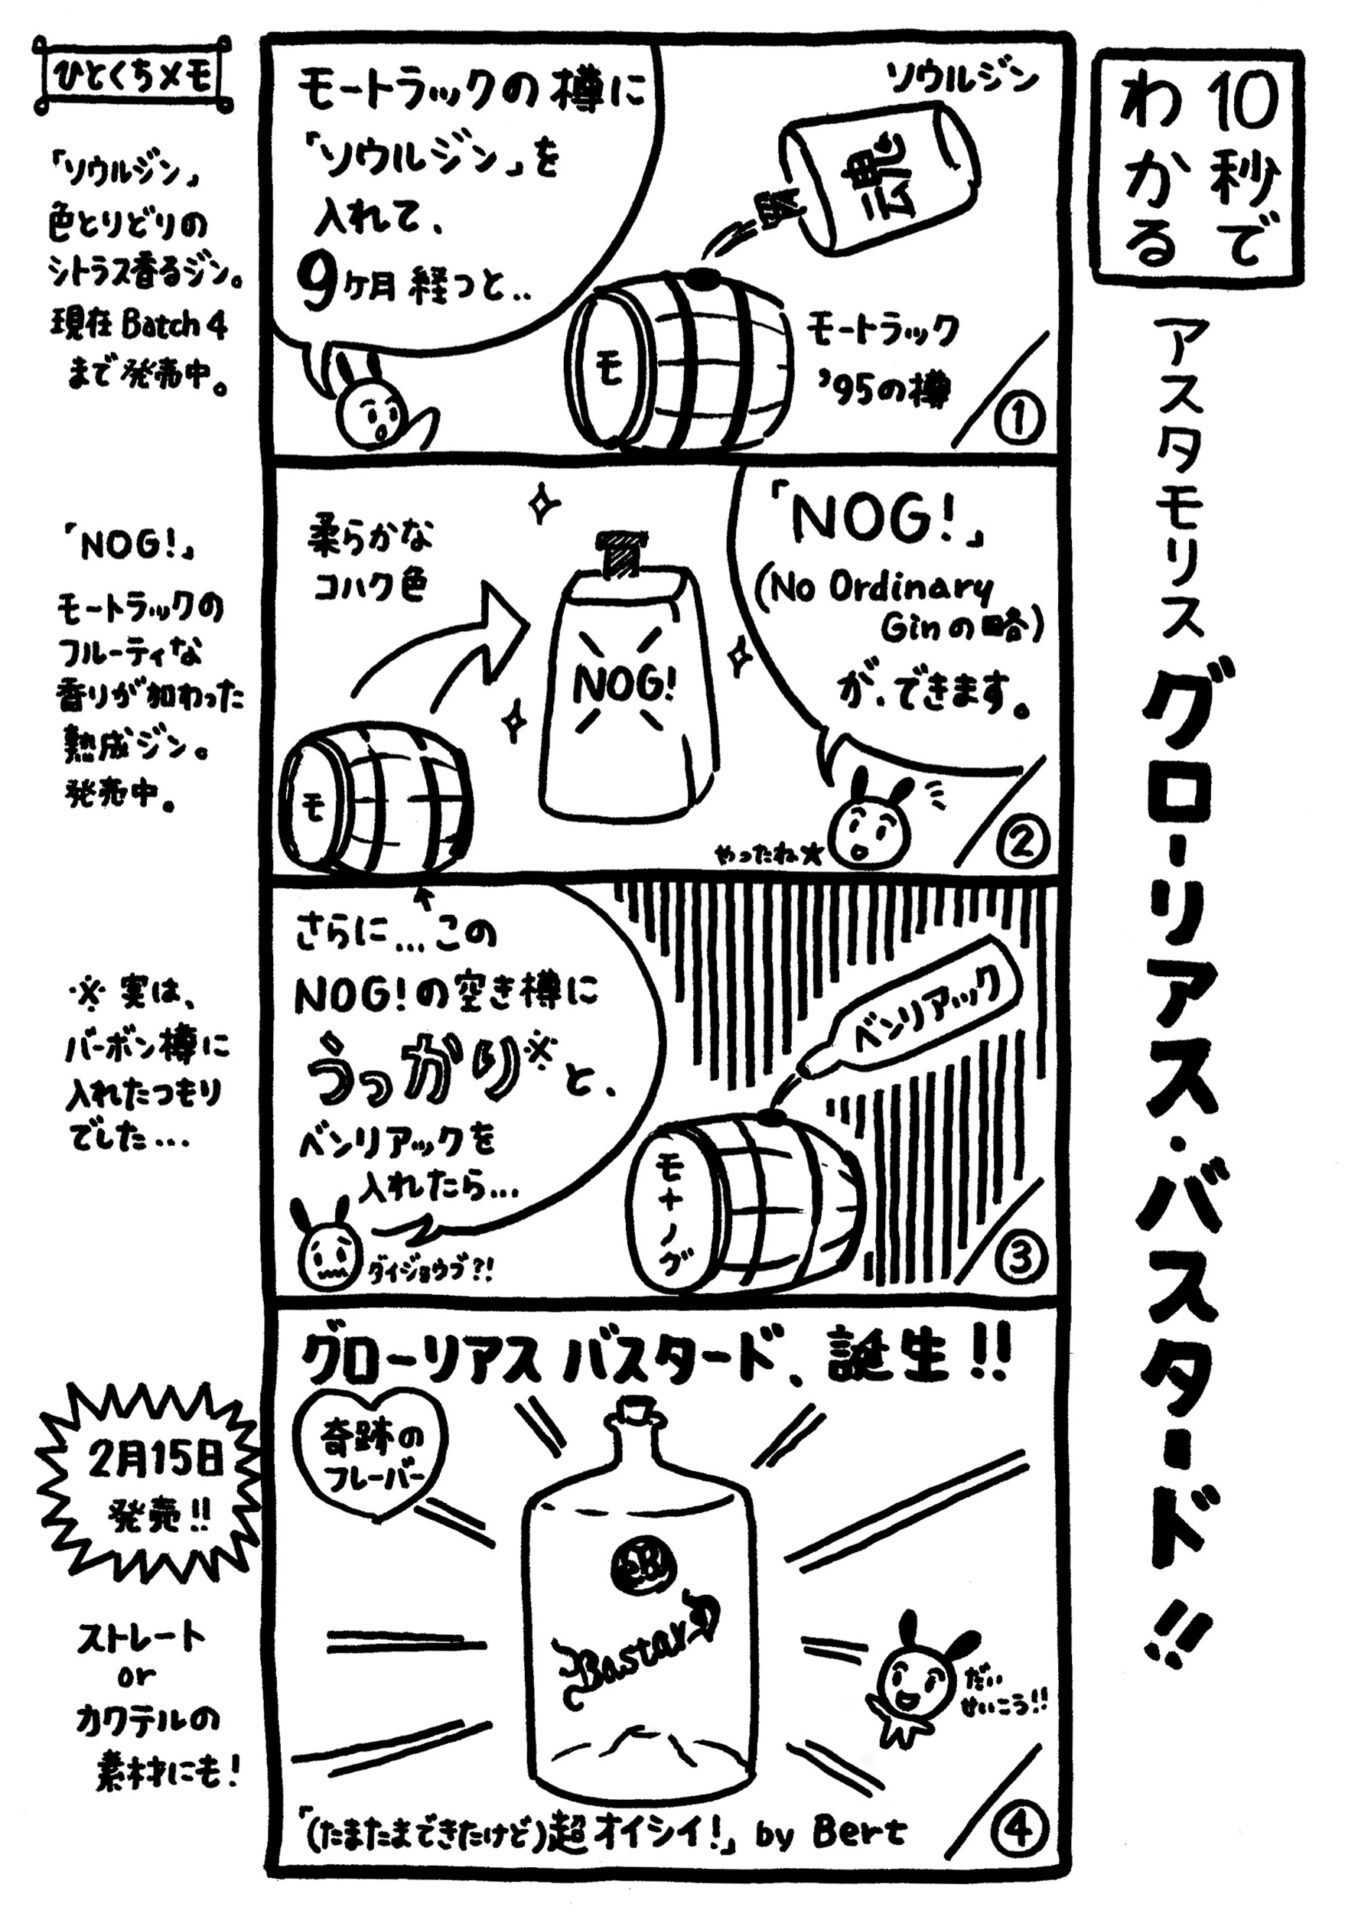 10秒で
わかる
アスタモリス グローリアス・バスタード!!
モートラックの樽に
「ソウルジン」を
入れて、
9ヶ月経つと..
ソウルジン
魂
モートラック
'95の樽
モ
①
ひとくちメモ
「ソウルジン」
色とりどりの
シトラス香るジン。
現在 Batch 4
まで発売中。
「NOG!」
(No Ordinary
Ginの略)
が、できます。
柔らかな
コハク色
NOG!
モ
やったね★
②
「NOG!」
モートラックの
フルーティな
香りが加わった
熟成ジン。
発売中。
さらに...この
NOG!の空き樽に
うっかり※と、
ベンリアックを
入れたら...
ダイジョウブ?!
ベンリアック
モ+ノグ
③
※実は、
バーボン樽に
入れたつもり
でした...
グローリアス バスタード、誕生!!
奇跡の
フレーバー
B
Bastard
だい
せいこう!!
「(たまたまできたけど)超オイシイ!」 by Bert
④
2月15日
発売!!
ストレート
or
カクテルの
素材にも!